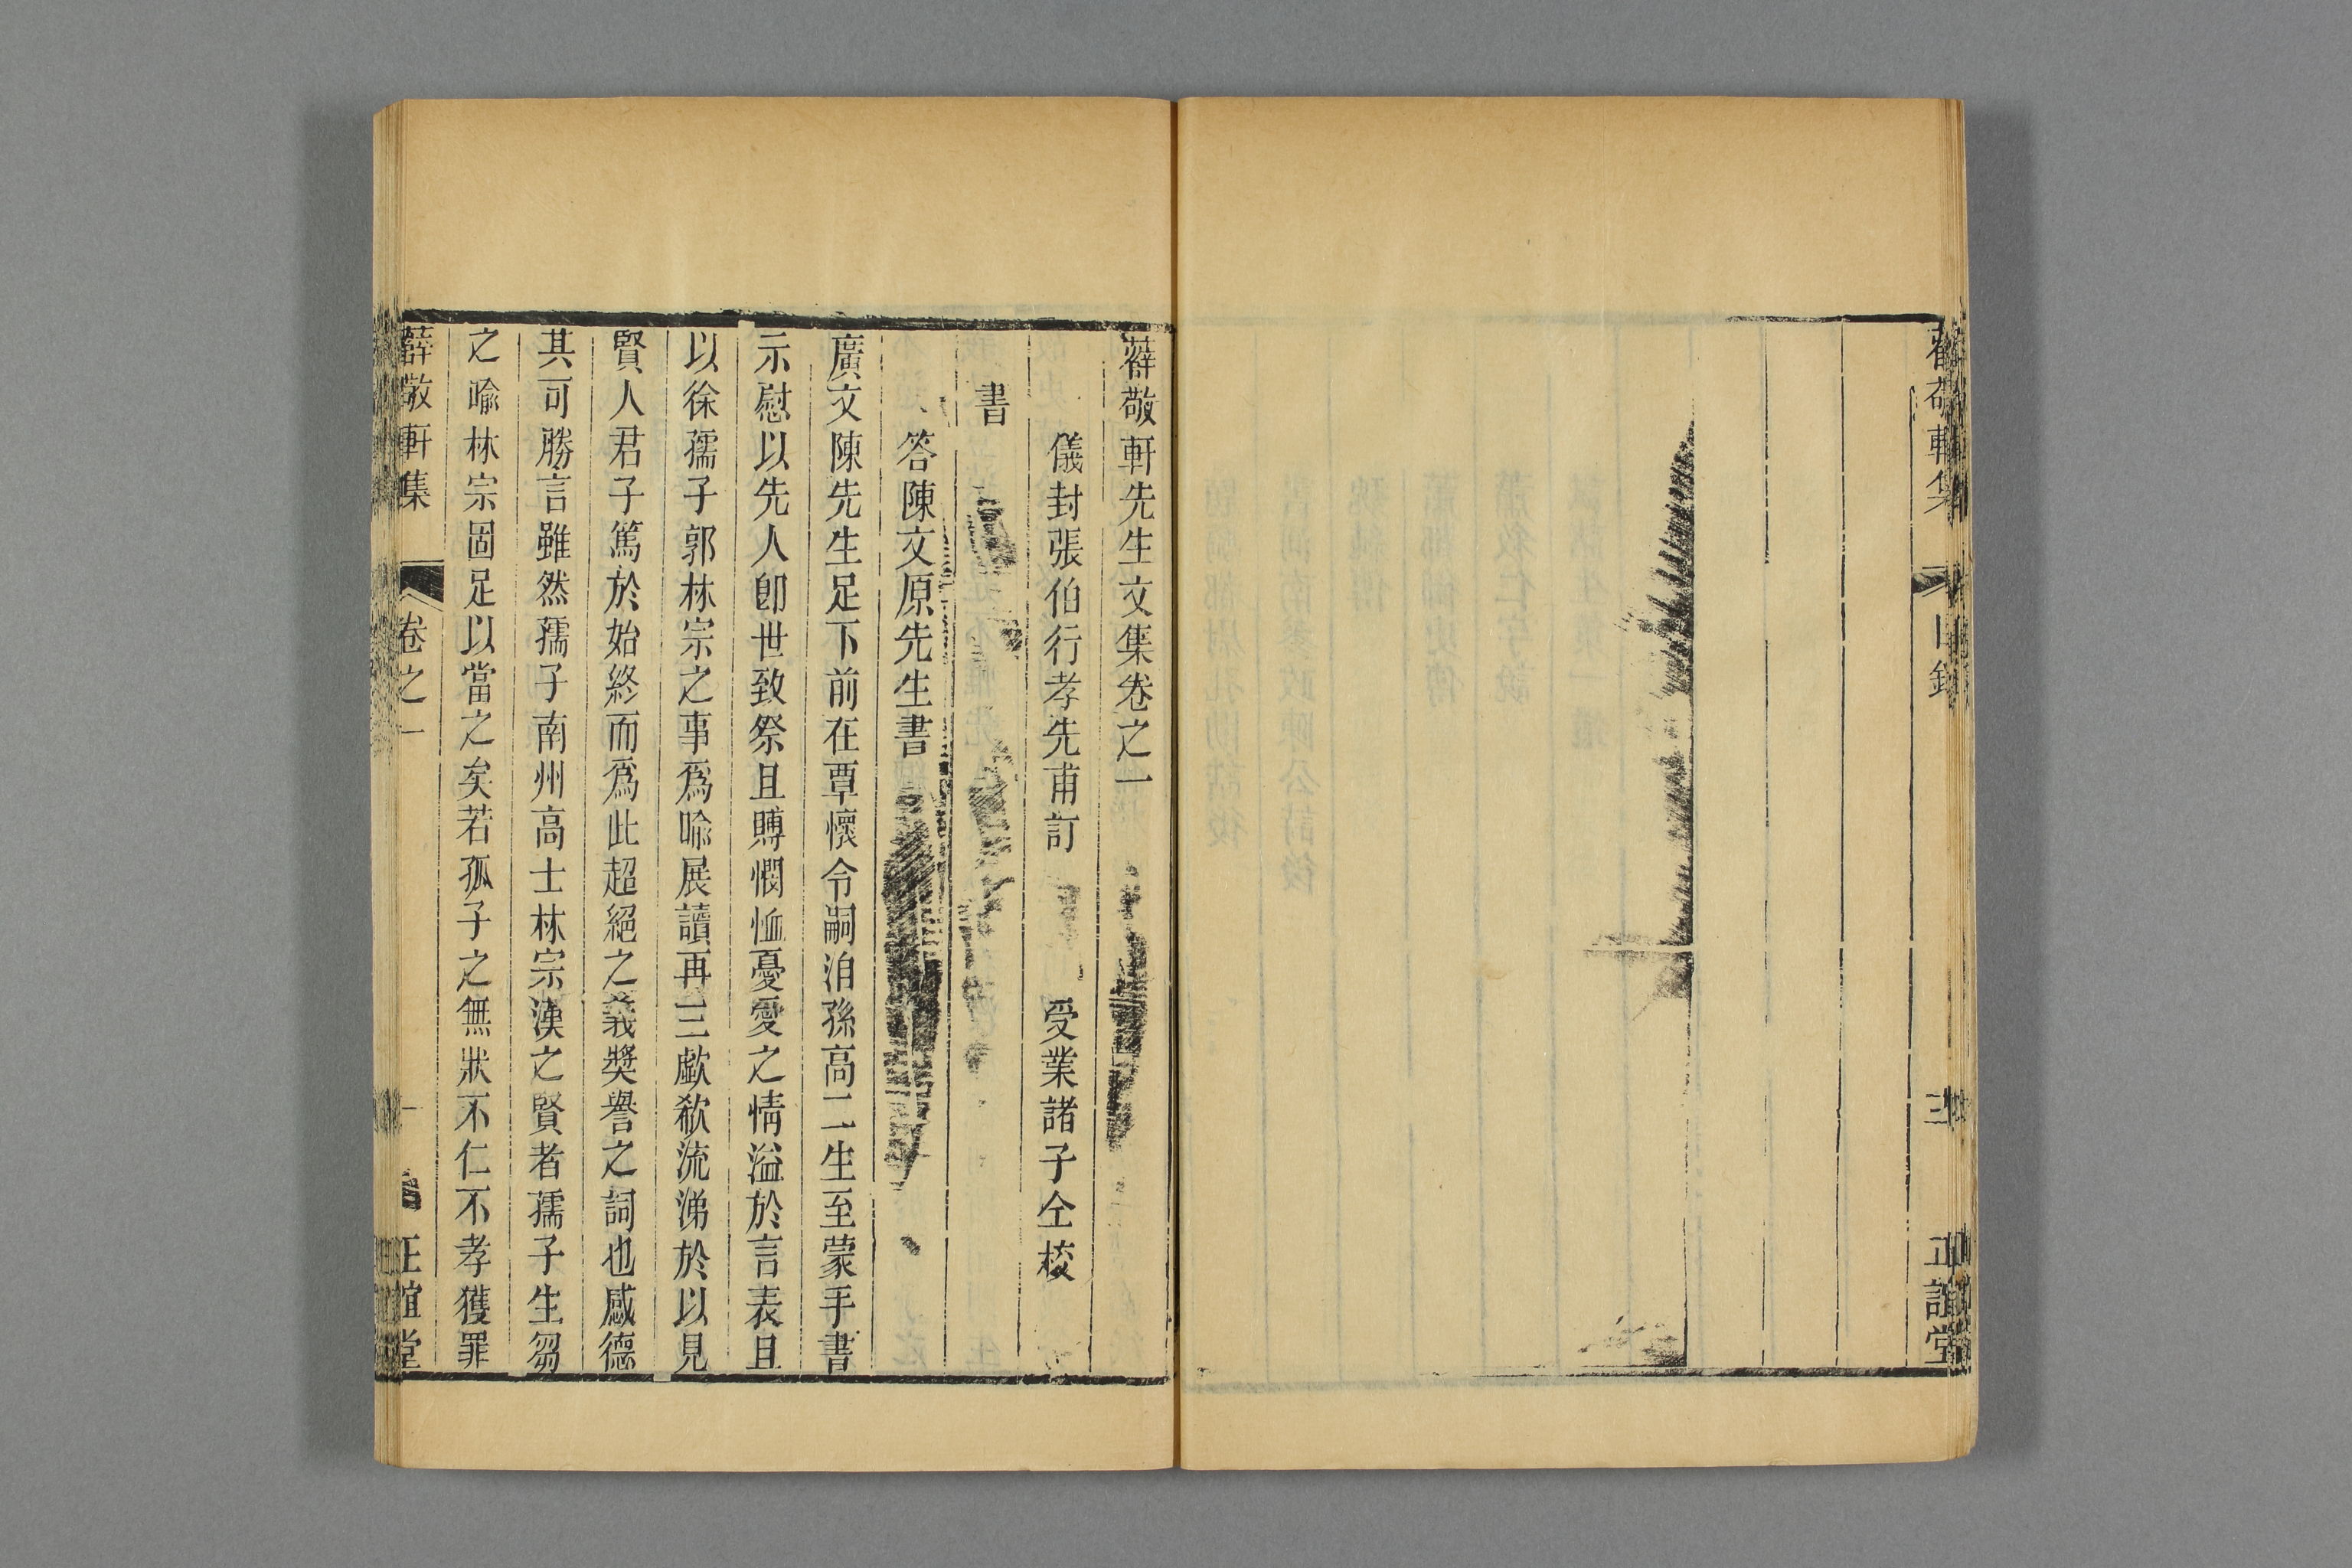 薛敬軒集
目錄
正誼堂
薛敬軒先生文集卷之一
儀封張伯行孝先甫訂 受業諸子仝校
書
答陳文原先生書
廣文陳先生足下前在覃懷令嗣洎孫高二生至蒙手書
示慰以先人卽世致祭且賻憫恤憂愛之情溢於言表且
以徐孺子郭林宗之事爲喻展讀再三歔欷流涕於以見
賢人君子篤於始終而爲此超絕之義獎譽之詞也感德
其可勝言雖然孺子南州高士林宗漢之賢者孺子生芻
之喻林宗固足以當之矣若孤子之無狀不仁不孝獲罪
薛敬軒集
卷之一
一
正誼堂